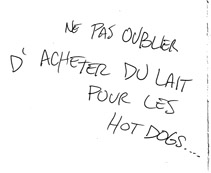 NE PAS OUBLIER
D'ACHETER DU LAIT
POUR LES
HOT DOGS....